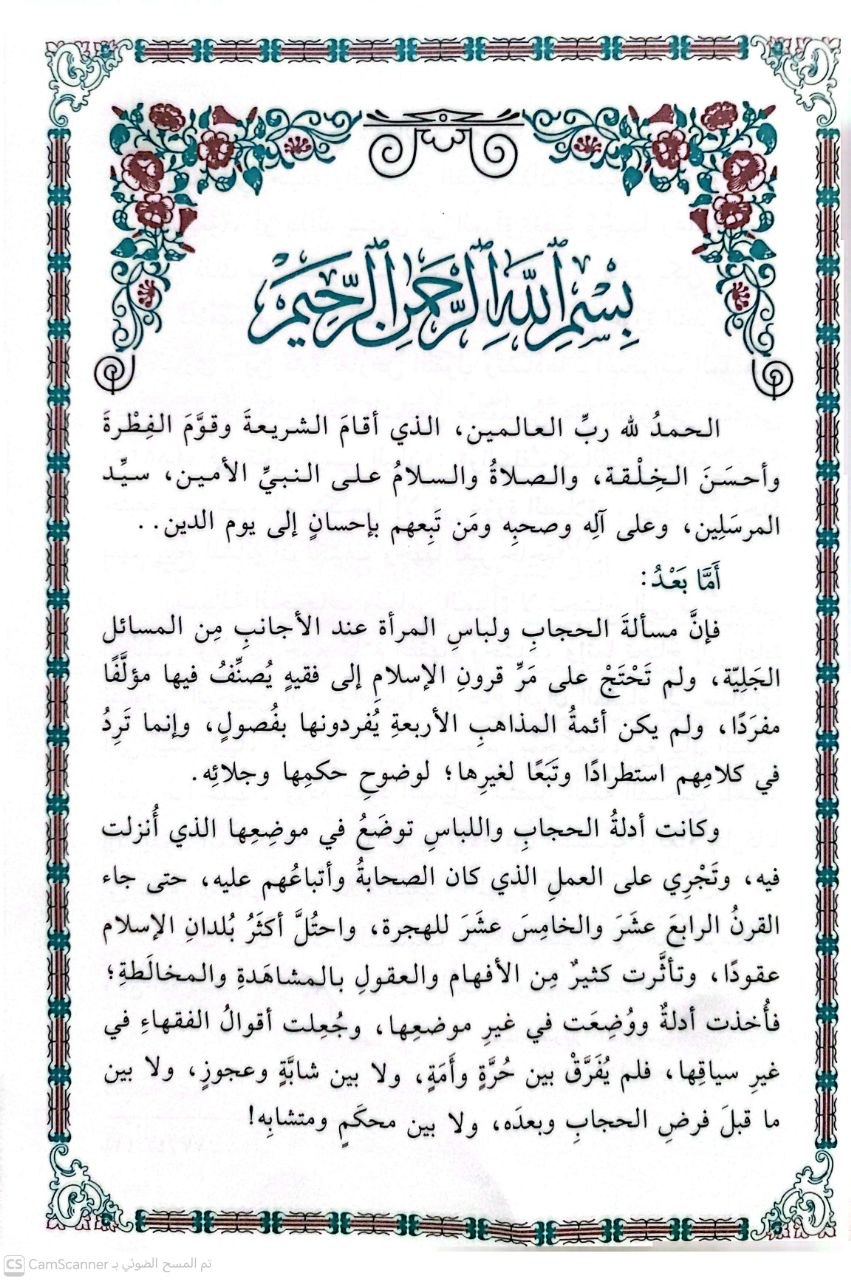 بِسْمِ ٱللَّهِ ٱلرَّحْمَٰنِ ٱلرَّحِيمِ
الحمدُ لله ربِّ العالمين، الذي أقامَ الشريعةَ وقوَّمَ الفِطْرةَ
وأحسَنَ الخِلْقة، والصلاةُ والسلامُ على النبيِّ الأمين، سيِّد
المرسَلِين، وعلى آلِه وصحبِه ومَن تَبِعهم بإحسانٍ إلى يوم الدين..
أَمَّا بَعْدُ:
فإنَّ مسألةَ الحجابِ ولباسِ المرأة عند الأجانبِ مِن المسائل
الجَلِيّة، ولم تَحْتَجْ على مَرِّ قرونِ الإسلامِ إلى فقيهٍ يُصنِّفُ فيها مؤلَّفًا
مفرَدًا، ولم يكن أئمةُ المذاهبِ الأربعةِ يُفردونها بفُصولٍ، وإنما تَرِدُ
في كلامِهم استطرادًا وتَبَعًا لغيرِها؛ لوضوحِ حكمِها وجلائِه.
وكانت أدلةُ الحجابِ واللباسِ توضَعُ في موضِعِها الذي أُنزلت
فيه، وتَجْرِي على العملِ الذي كان الصحابةُ وأتباعُهم عليه، حتى جاء
القرنُ الرابعَ عشَرَ والخامِسَ عشَرَ للهجرة، واحتُلَّ أكثَرُ بُلدانِ الإسلام
عقودًا، وتأثَّرت كثيرٌ مِن الأفهام والعقولِ بالمشاهَدةِ والمخالَطةِ؛
فأُخذت أدلةٌ ووُضِعَت في غيرِ موضعِها، وجُعِلت أقوالُ الفقهاءِ في
غيرِ سياقِها، فلم يُفَرَّقْ بين حُرَّةٍ وأَمَةٍ، ولا بين شابَّةٍ وعجوزٍ، ولا بين
ما قبلَ فرضِ الحجابِ وبعدَه، ولا بين محكَمٍ ومتشابِه!
CS CamScanner تم المسح الضوئي بـ